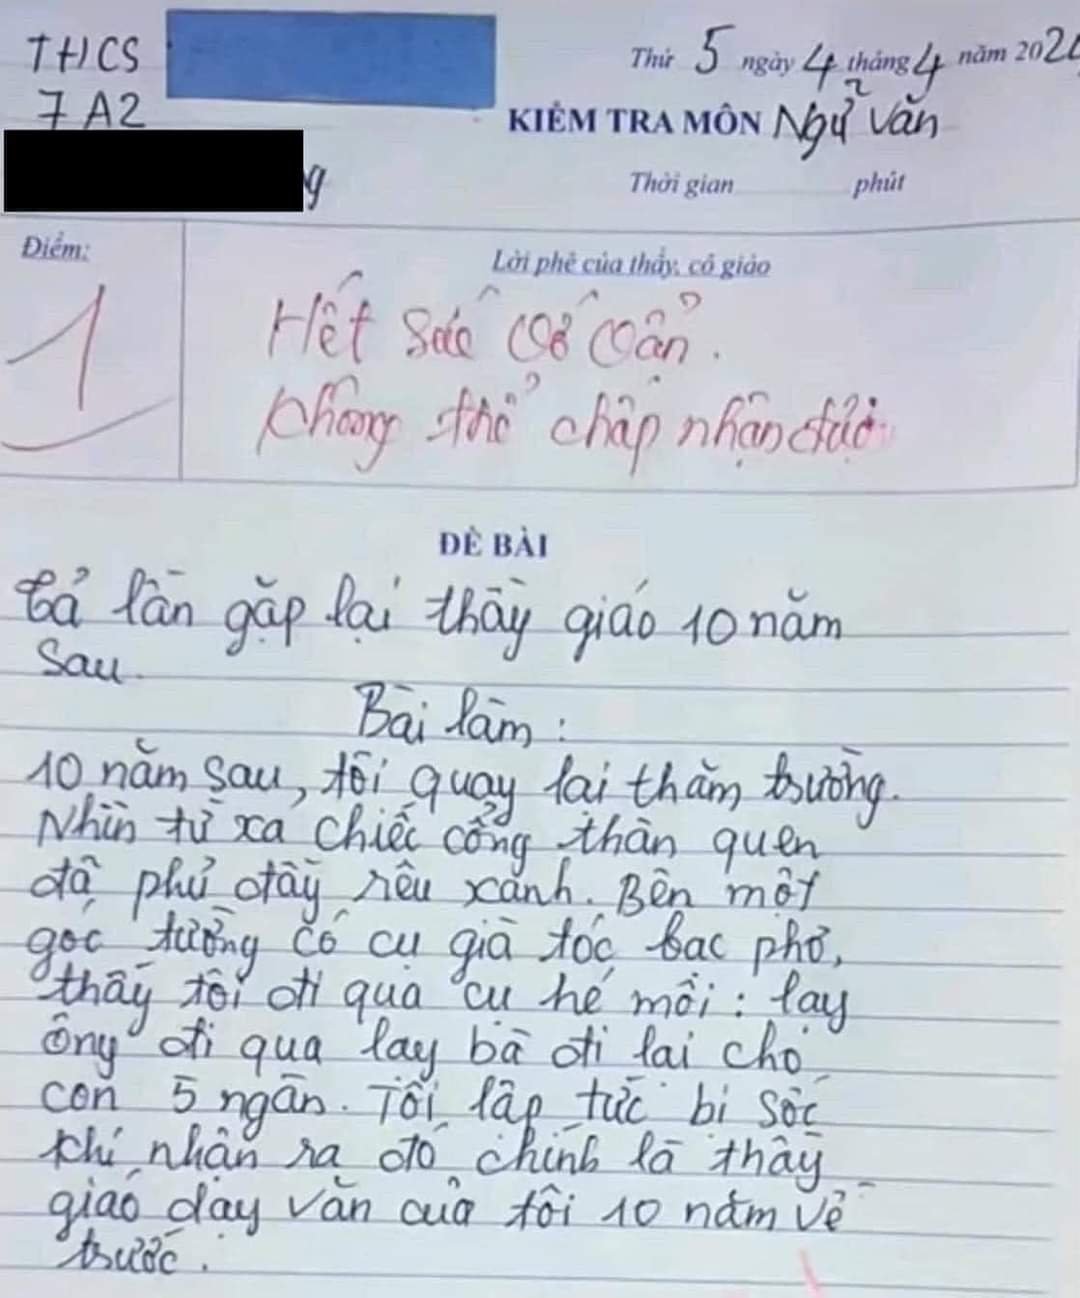 THCS
Thứ 5 ngày 4 tháng 4 năm 202
7A2
KIỂM TRA MÔN Ngữ văn
Thời gian phút
Điểm:
Lời phê của thầy, cô giáo
1
Hết sức cổ vận.
Không thể chấp nhận được
ĐỀ BÀI
Tả lần gặp lại thầy giáo 10 năm
sau.
Bài làm:
10 năm sau, tôi quay lại thăm trường.
Nhìn từ xa chiếc cổng thân quen
đã phủ đầy rêu xanh. Bên một
góc tường có cụ già tóc bạc phơ,
thấy tôi đi qua cụ hé môi: lạy
ông đi qua lạy bà đi lại cho
con 5 ngàn. Tôi lập tức bị sốc
khi nhận ra đó chính là thầy
giáo dạy văn của tôi 10 năm về
trước.